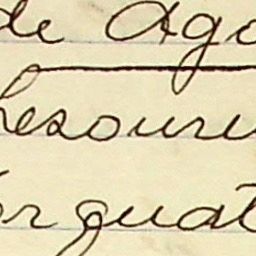 de Ago
hesouru
or quat